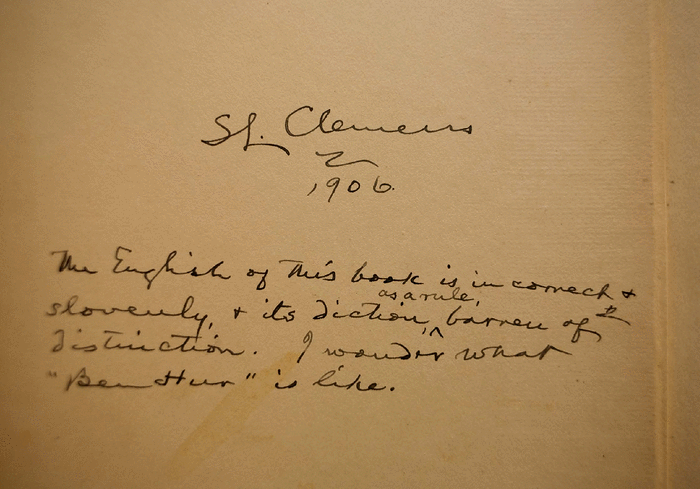 SL. Clemens
1906.
The English of this book is incorrect &
slovenly, & its diction, as a rule, barren of
distinction. I wonder what
"Ben Hur" is like.